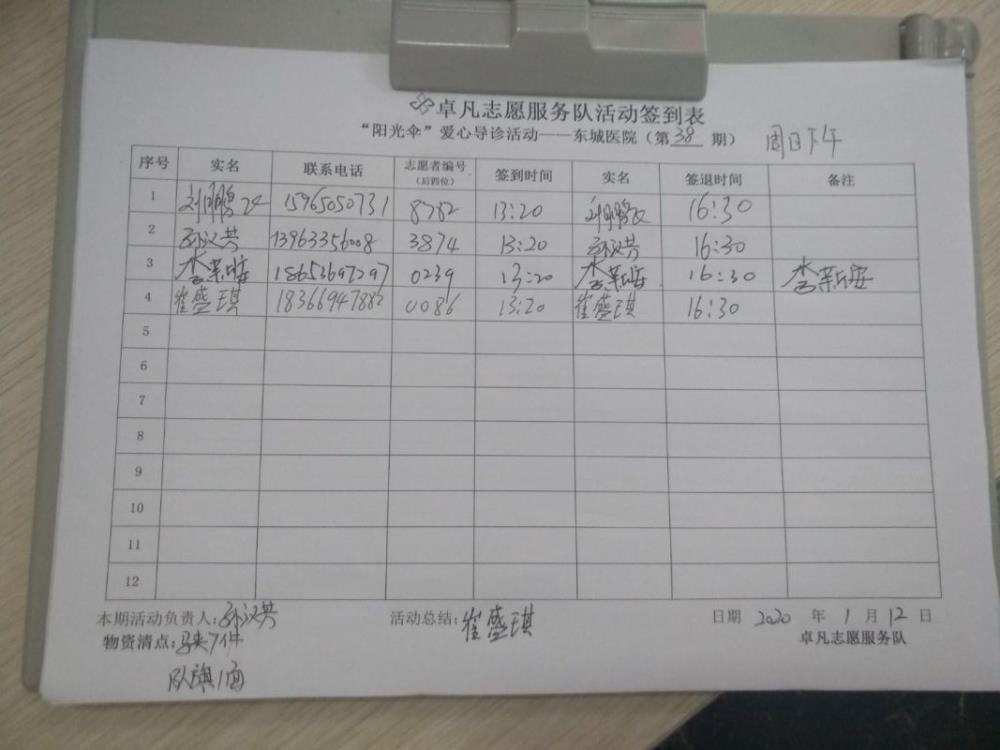 卓凡志愿服务队活动签到表
“阳光伞”爱心导诊活动——东城医院(第 38 期) 周日下午
序号 实名 联系电话 志愿者编号(后四位) 签到时间 实名 签退时间 备注
1 15965050731 8782 13:20 16:30
2 孙汉芸 13963356008 3874 13:20 孙汉芸 16:30
3 18653697297 0239 13:20 16:30
4 崔盛琪 18366947882 0086 13:20 崔盛琪 16:30
5
6
7
8
9
10
11
12
本期活动负责人:孙汉芸 活动总结:崔盛琪 日期 2020 年 1 月 12 日
物资清点:马夹7件 卓凡志愿服务队
队旗1面